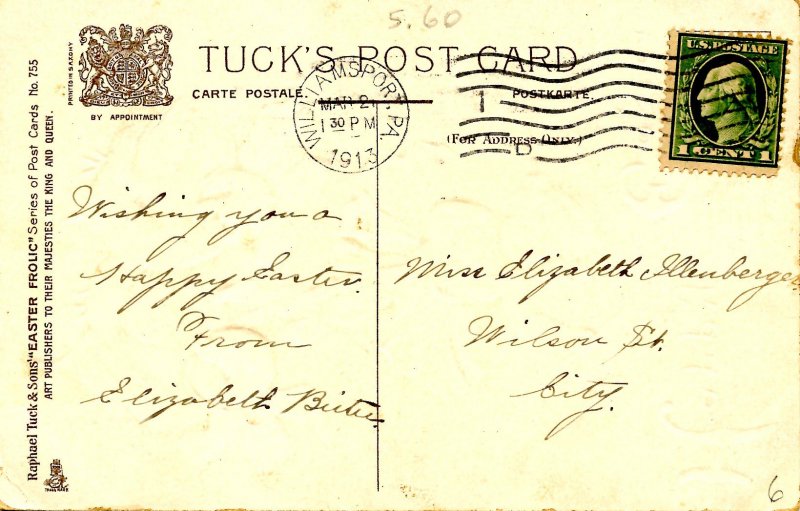 5.60
TUCK'S POST CARD
CARTE POSTALE.
POSTKARTE
(FOR ADDRESS ONLY.)
PRINTED IN SAXONY
BY APPOINTMENT
WILLIAMSPORT, PA
MAR 2
1 30 PM
1913
U.S. POSTAGE
1 CENT 1
Raphael Tuck & Sons' "EASTER FROLIC" Series of Post Cards No. 755
ART PUBLISHERS TO THEIR MAJESTIES THE KING AND QUEEN.
TRADE MARK
Wishing you a
Happy Easter.
From
Elizabeth
Miss Elizabeth Illenberger
Wilson St.
City.
6